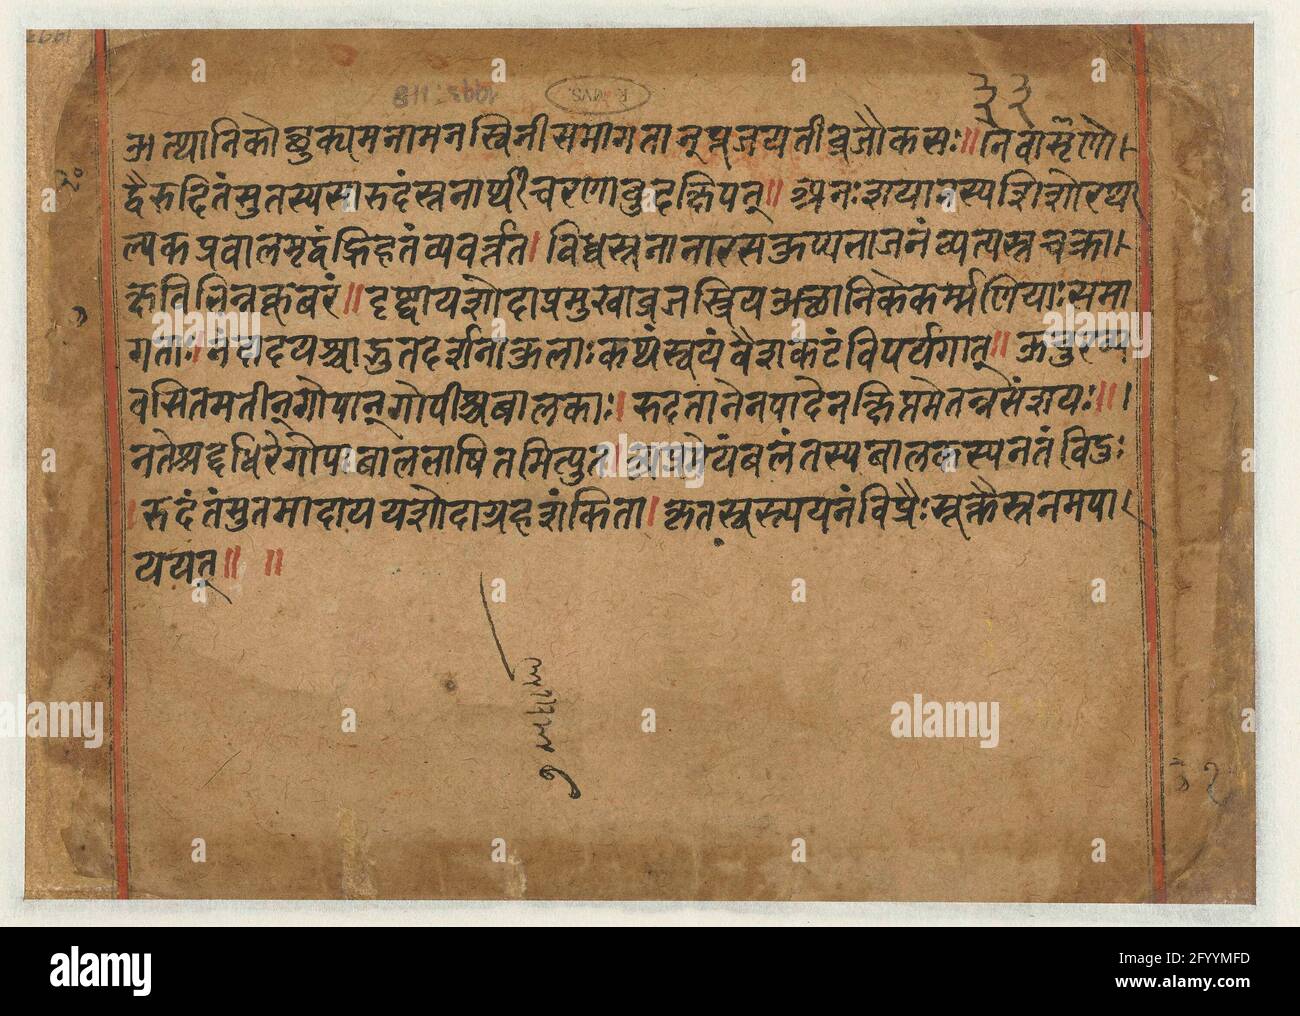 ३३
अत्थानिकौत्सुक्यमनामनस्विनीसमागतान्पूजयतीव्रजौकसः॥निवाशृणो
द्वैरुदितंसुतस्यसारुदंस्तनार्थीचरणावुदक्षिपत्॥अनःशयानस्यशिशोरथा
ल्पकप्रवालमृद्वंघ्रिहतंव्यवर्त्तत।विध्वस्तनानारसकुप्यभाजनंव्यत्यस्तचक्रा
क्षविभिन्नकूबरं॥दृष्ट्वायशोदाप्रमुखाव्रजस्त्रियअछानिकेकर्म्मणियाःसमा
गताः।नंदादयश्चाद्भुतदर्शनाकुलाःकथंस्वयंवैशकटंविपर्यगात्॥ऊचुरव्य
वसितमतीन्गोपान्गोपीश्चबालकाः।रुदतानेनपादेनक्षिप्तमेतन्नसंशयः॥
नतेश्रद्दधिरेगोपाबालभाषितमित्युत।अप्रमेयंबलंतस्यबालकस्यनतंविदुः
।रुदंतंसुतमादाययशोदाग्रहशंकिता।कृतस्वस्त्ययनंविप्रैःसूक्तैस्तनमपा
ययत्॥ ॥
alamy
Image ID: 2FYYMFD
www.alamy.com